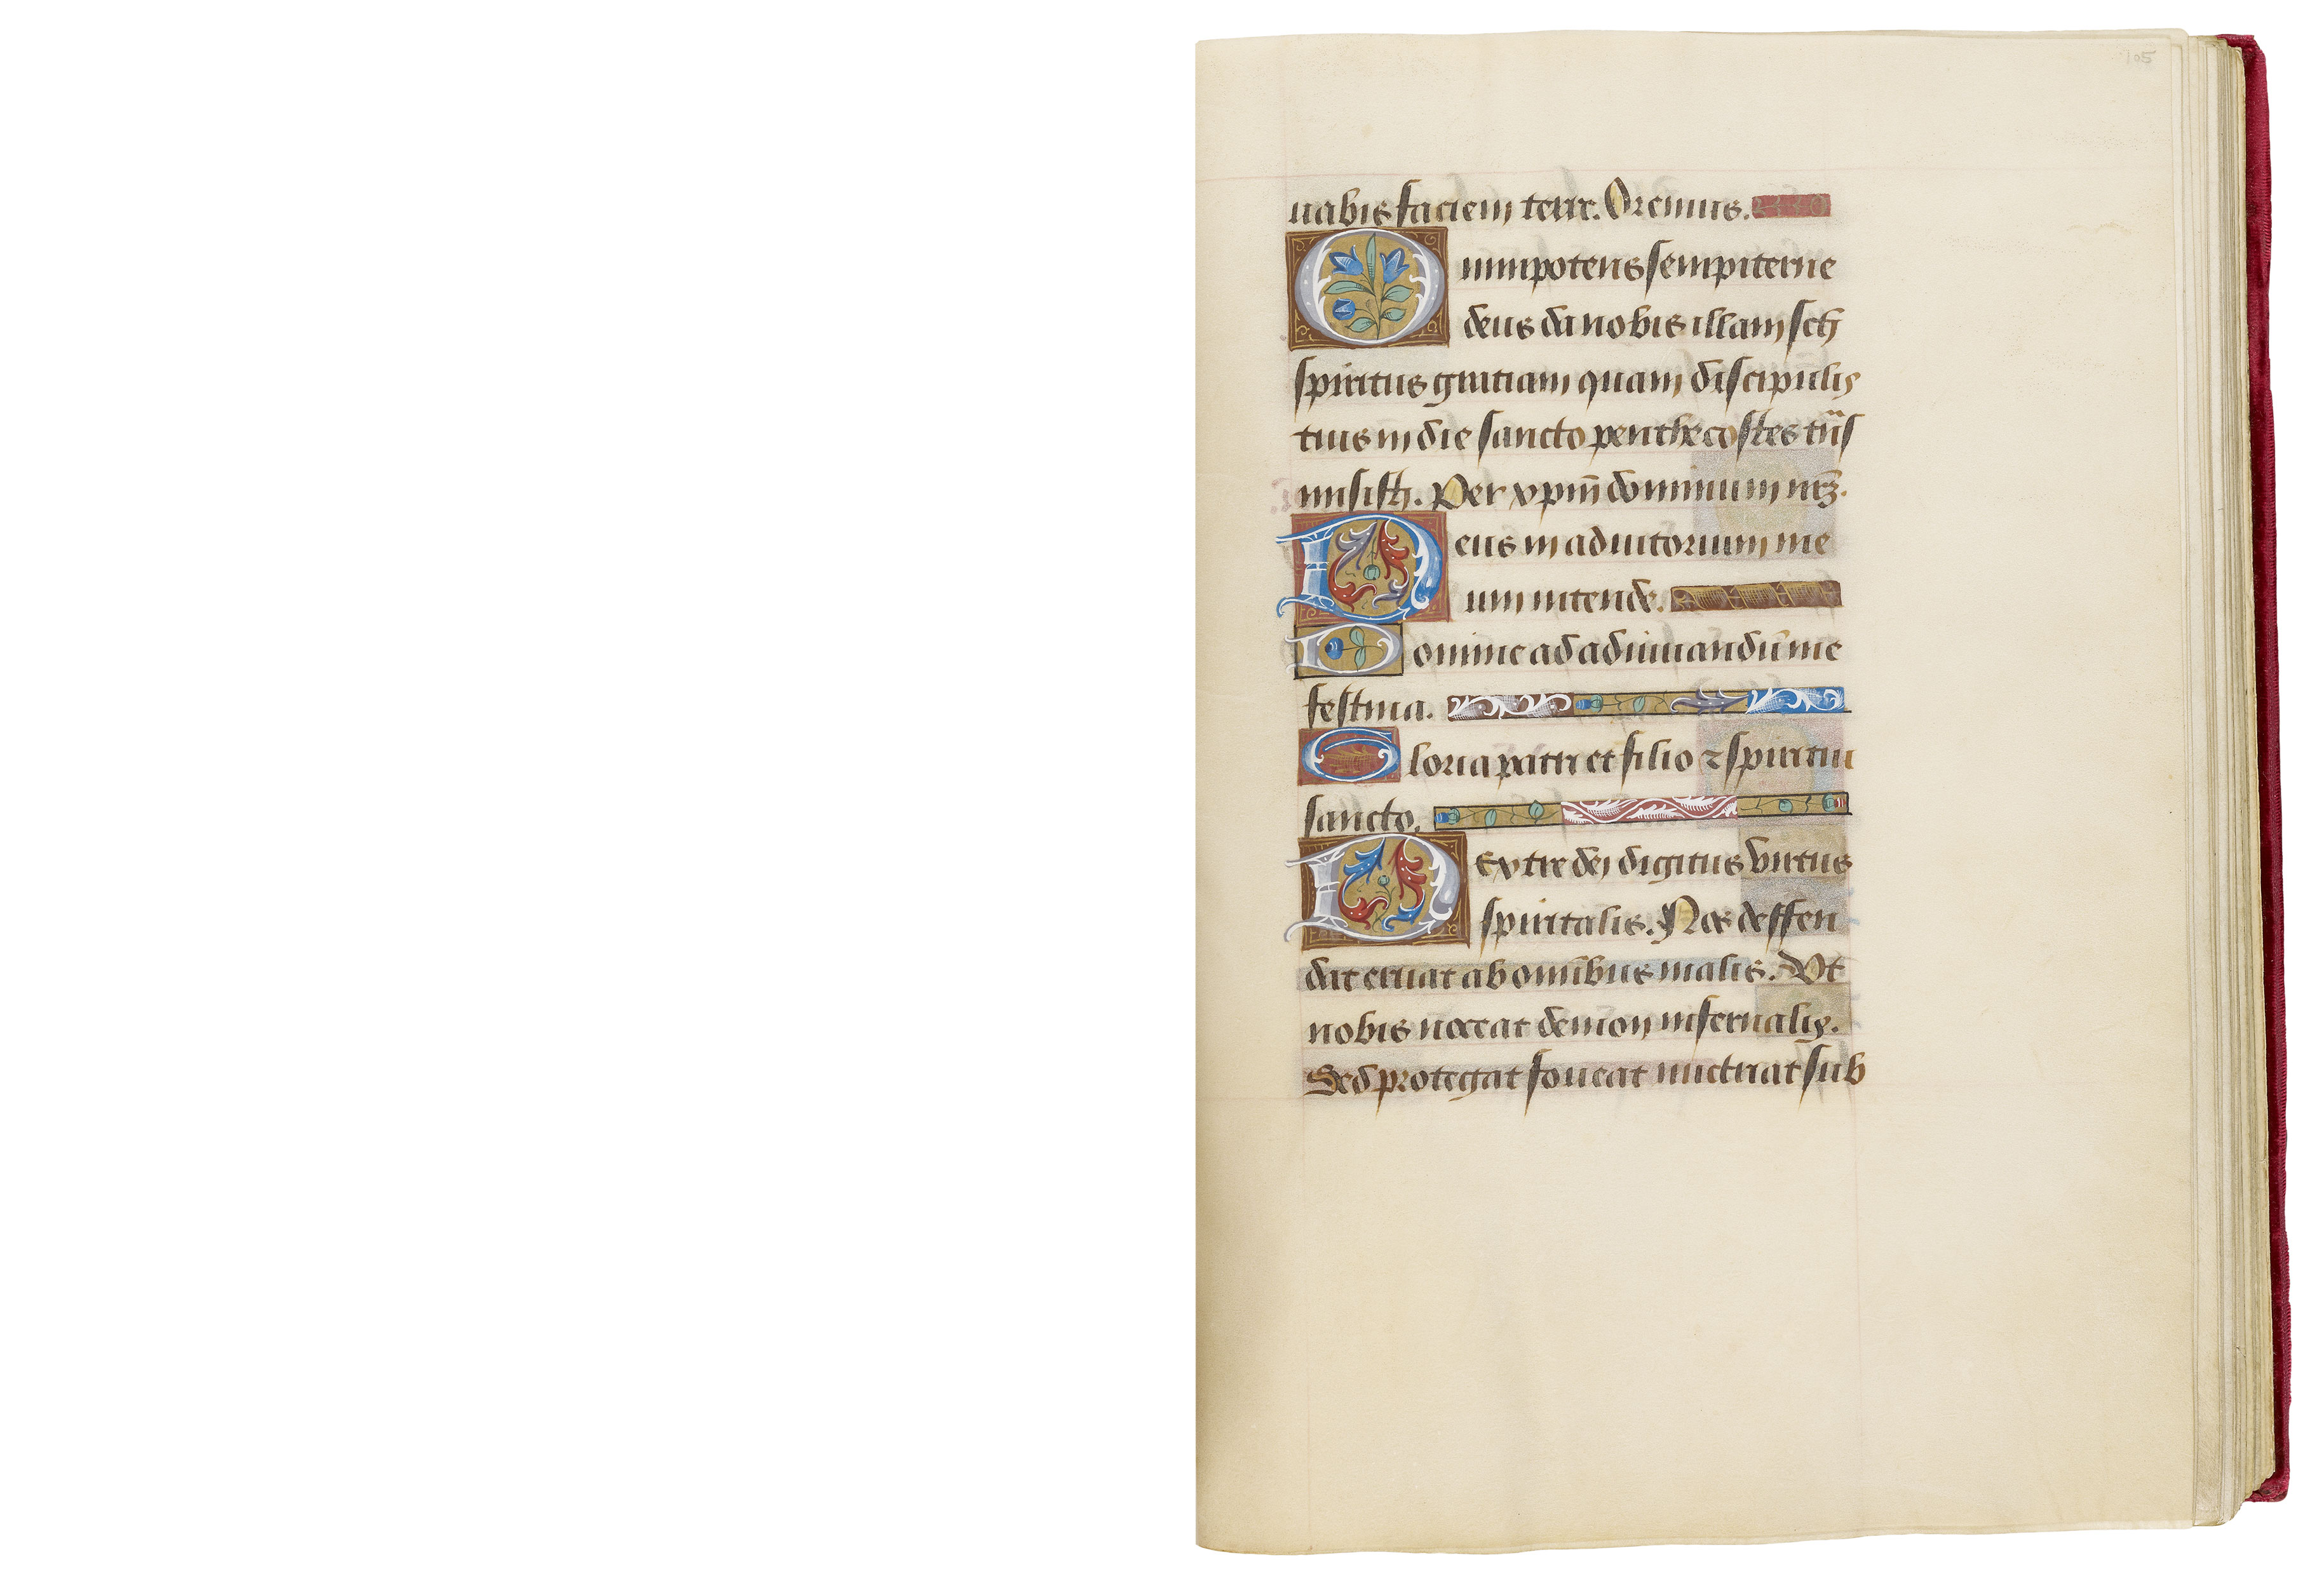 105
uabis faciem terre. Oremus.
Omnipotens sempiterne
deus da nobis illam scti
spiritus gratiam quam discipulis
tuis in die sancto penthecostes tuis
misisti. Per xpm̄ dominum nrꝫ.
Deus in adiutorium me
um intende.
Domine ad adiuuandū me
festina.
Gloria patri et filio ⁊ spiritui
sancto.
Dextre dei digitus virtus
spiritalis. Nos deffen
dat eruat ab omībus malis. Vt
nobis noceat demon infernalis.
Sed protegat foueat nutriat sub